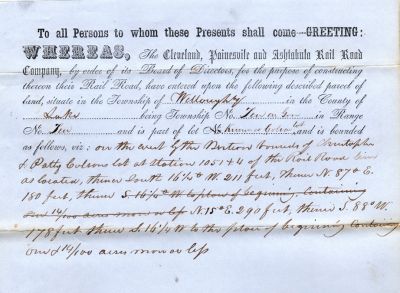 To all Persons to whom these Presents shall come—GREETING:
WHEREAS, The Cleveland, Painesville and Ashtabula Rail Road
Company, by order of its Board of Directors, for the purpose of constructing
thereon their Rail Road, have entered upon the following described parcel of
land, situate in the Township of Willoughby in the County of
Lake being Township No. in Range
No. Ten and is part of lot and is bounded
as follows, viz: on the west by the bounds of Christopher
& Patty Colsons lot at station 1051+4 of the Rail Road line
as located, thence South 16¼° W. 211 feet, thence N. 87° E.
180 feet, thence S. 16¼° W to place of beginning Containing
One 14/100 acres more or less N. 15° E. 290 feet, thence S. 88° W.
178 feet thence S. 16¼ W to the place of beginning Containing
One & 14/100 acres more or less